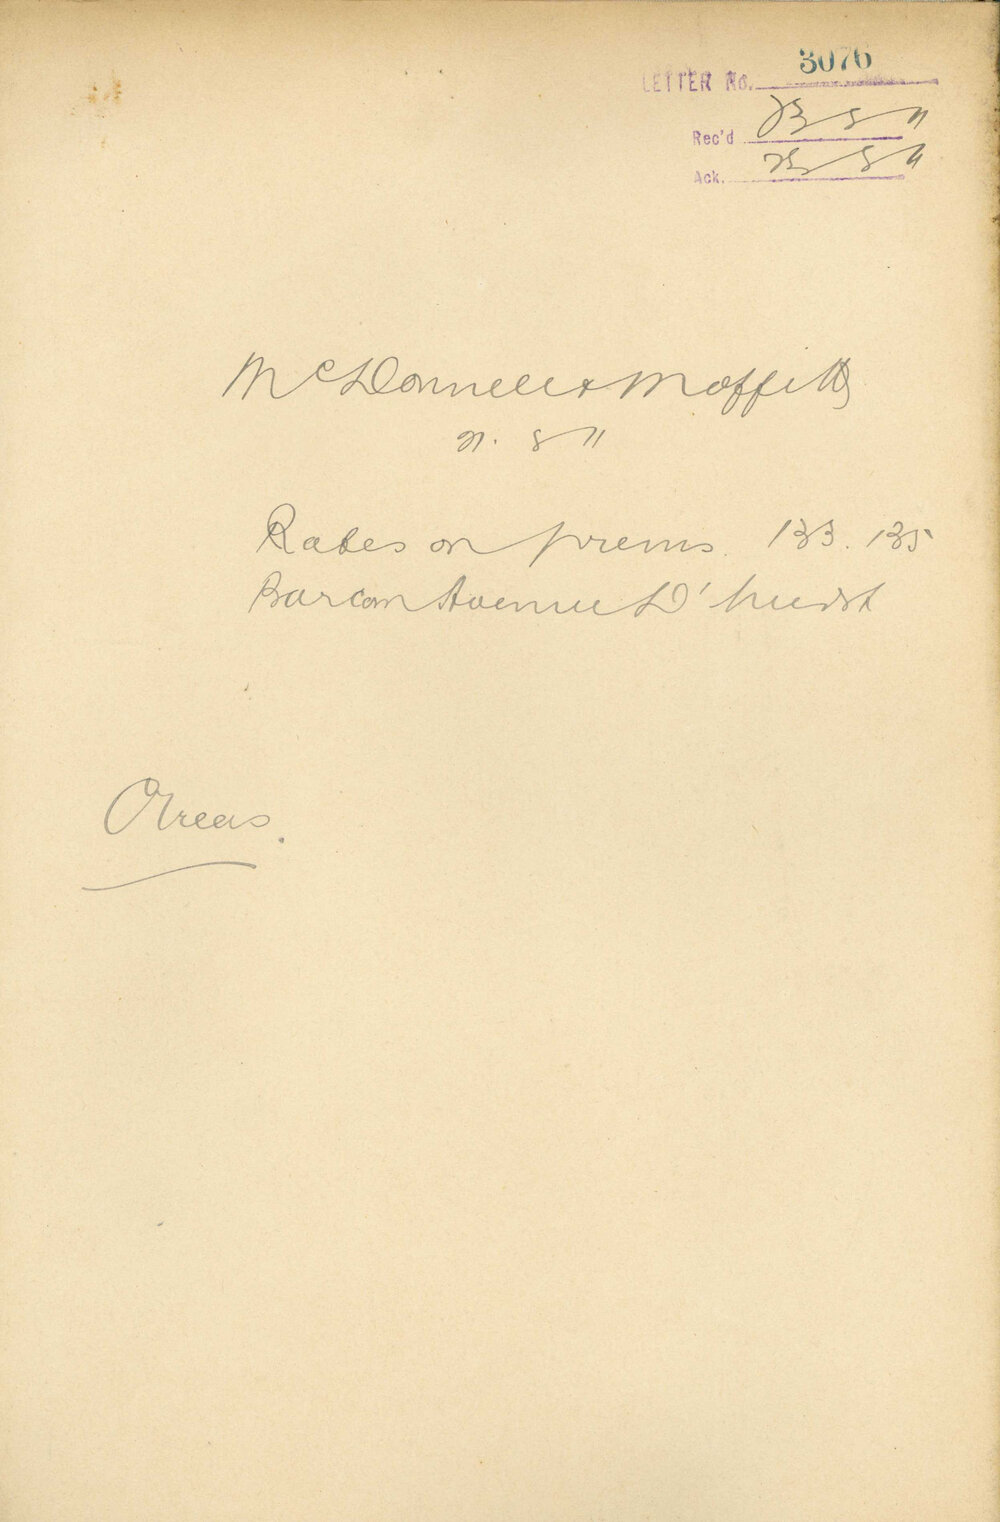 LETTER No. 3076
Rec'd 23 8 11
Ack. 25 8 11
McDonnell & Moffitt
21. 8 11
Rates on prems. 133. 135
Barcom Avenue D'hurst
Areas.